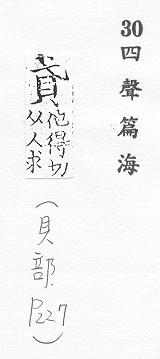 30
四聲篇海
貣
他得切
从人求
（貝部 P227）